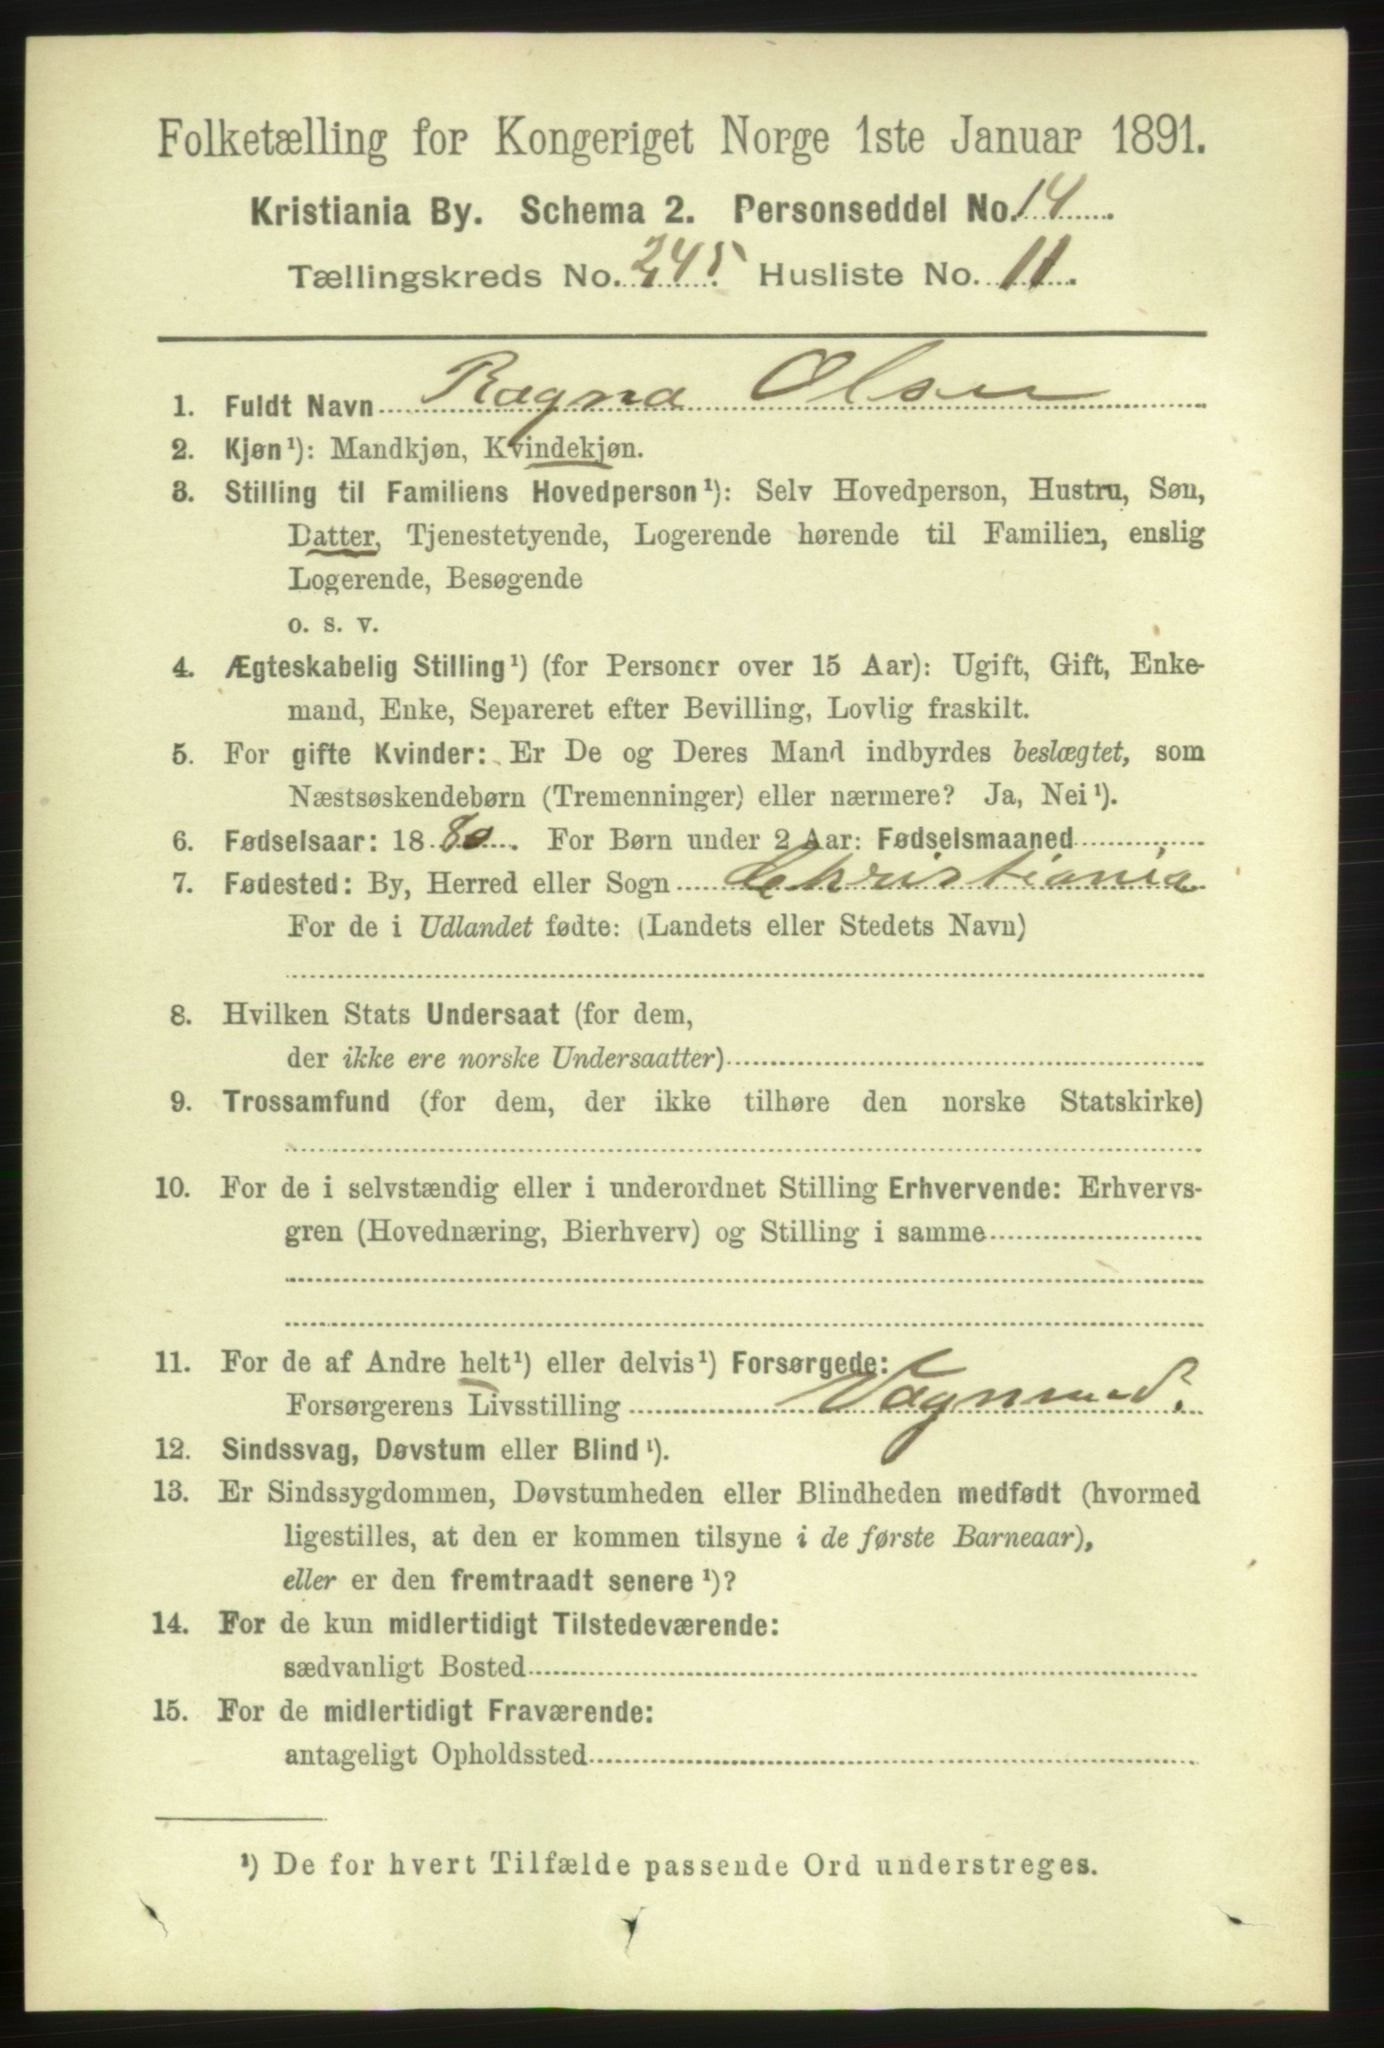 Folketælling for Kongeriget Norge 1ste Januar 1891.
Kristiania By. Schema 2. Personseddel No. 14
Tællingskreds No. 245 Husliste No. 11
1. Fuldt Navn Ragna Olsen
2. Kjøn¹): Mandkjøn, Kvindekjøn.
3. Stilling til Familiens Hovedperson¹): Selv Hovedperson, Hustru, Søn,
Datter, Tjenestetyende, Logerende hørende til Familien, enslig
Logerende, Besøgende
o. s. v.
4. Ægteskabelig Stilling¹) (for Personer over 15 Aar): Ugift, Gift, Enke-
mand, Enke, Separeret efter Bevilling, Lovlig fraskilt.
5. For gifte Kvinder: Er De og Deres Mand indbyrdes beslægtet, som
Næstsøskendebørn (Tremenninger) eller nærmere? Ja, Nei¹).
6. Fødselsaar: 1880. For Børn under 2 Aar: Fødselsmaaned
7. Fødested: By, Herred eller Sogn Christiania
For de i Udlandet fødte: (Landets eller Stedets Navn)
8. Hvilken Stats Undersaat (for dem,
der ikke ere norske Undersaatter)
9. Trossamfund (for dem, der ikke tilhøre den norske Statskirke)
10. For de i selvstændig eller i underordnet Stilling Erhvervende: Erhvervs-
gren (Hovednæring, Bierhverv) og Stilling i samme
11. For de af Andre helt¹) eller delvis¹) Forsørgede:
Forsørgerens Livsstilling Vognmd.
12. Sindssvag, Døvstum eller Blind¹).
13. Er Sindssygdommen, Døvstumheden eller Blindheden medfødt (hvormed
ligestilles, at den er kommen tilsyne i de første Barneaar),
eller er den fremtraadt senere¹)?
14. For de kun midlertidigt Tilstedeværende:
sædvanligt Bosted
15. For de midlertidigt Fraværende:
antageligt Opholdssted
¹) De for hvert Tilfælde passende Ord understreges.